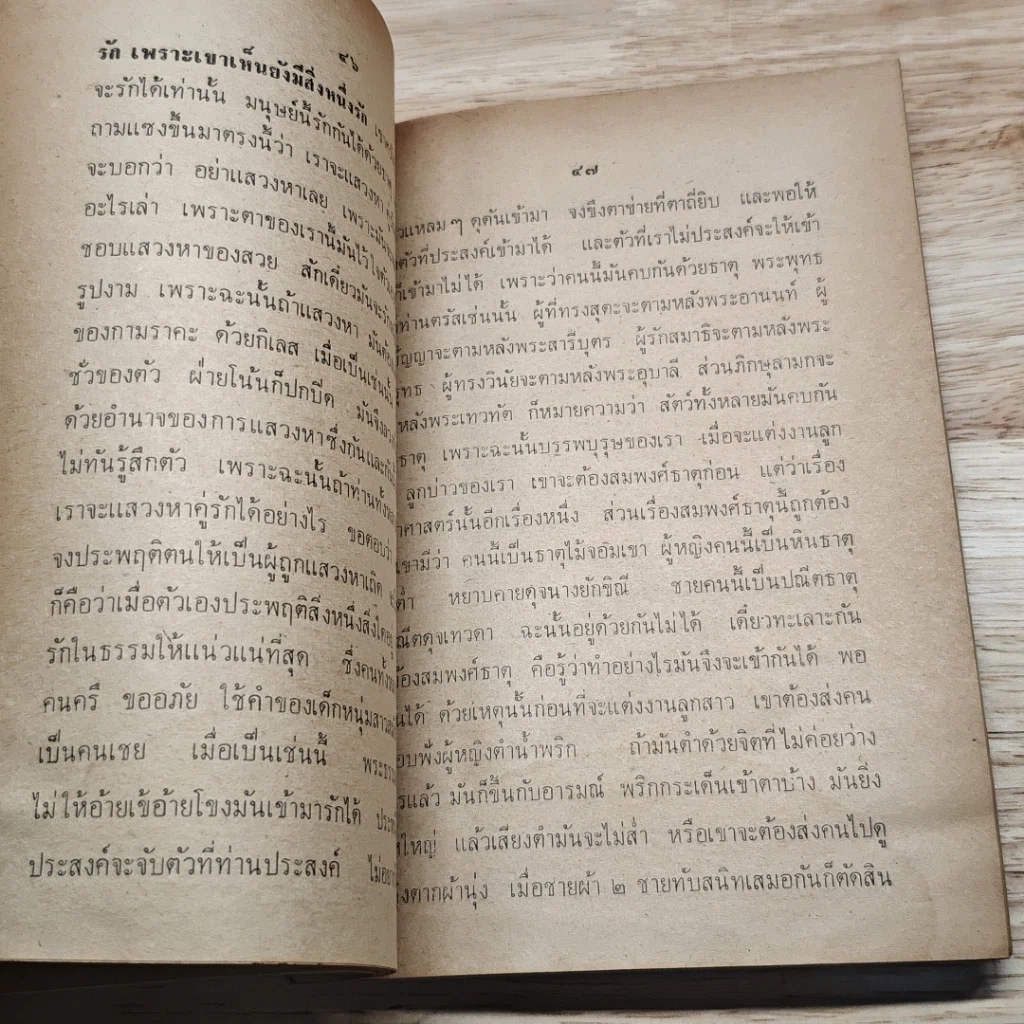 ๔๖
รัก เพราะเขาเห็นยังมีสิ่งหนึ่งรัก
จะรักได้เท่านั้น มนุษย์นี้รักกันได้ด้วย
ถามแซงขึ้นมาตรงนี้ว่า เราจะแสวงหา
จะบอกว่า อย่าแสวงหาเลย เพราะมัน
อะไรเล่า เพราะตาของเรานี้มันไว้ใจ
ชอบแสวงหาของสวย สักเดี๋ยวมันจะรัก
รูปงาม เพราะฉะนั้นถ้าแสวงหา มันต้อง
ของกามราคะ ด้วยกิเลส เมื่อเป็นเช่นนั้น
ชั่วของตัว ฝ่ายโน้นก็ปกปิด มันจึง
ด้วยอำนาจของการแสวงหาซึ่งกันและกัน
ไม่ทันรู้สึกตัว เพราะฉะนั้นถ้าท่านทั้ง
เราจะแสวงหาคู่รักได้อย่างไร ขอตอบว่า
จงประพฤติตนให้เป็นผู้ถูกแสวงหาเถิด
ก็คือว่าเมื่อตัวเองประพฤติสิ่งหนึ่งสิ่งใด
รักในธรรมให้แน่วแน่ที่สุด ซึ่งคนทั้ง
คนครึ ขออภัย ใช้คำของเด็กหนุ่มสาว
เป็นคนเชย เมื่อเป็นเช่นนี้
ไม่ให้อ้ายเข้อ้ายโขงมันเข้ามารักได้
ประสงค์จะจับตัวที่ท่านประสงค์
๔๗
แหลมๆ ดุดันเข้ามา จงขึงตาข่ายที่ตาถี่ยิบ และพอให้
ตัวที่ประสงค์เข้ามาได้ และตัวที่เราไม่ประสงค์จะให้เข้า
ก็เข้ามาไม่ได้ เพราะว่าคนนี้มันคบกันด้วยธาตุ พระพุทธ
ท่านตรัสเช่นนั้น ผู้ที่ทรงสุตะจะตามหลังพระอานนท์ ผู้
จะตามหลังพระสารีบุตร ผู้รักสมาธิจะตามหลังพระ
ผู้ทรงวินัยจะตามหลังพระอุบาลี ส่วนภิกษุลามกจะ
หลังพระเทวทัต ก็หมายความว่า สัตว์ทั้งหลายมันคบกัน
ธาตุ เพราะฉะนั้นบรรพบุรุษของเรา เมื่อจะแต่งงานลูก
ลูกบ่าวของเรา เขาจะต้องสมพงศ์ธาตุก่อน แต่ว่าเรื่อง
ศาสตร์นั้นอีกเรื่องหนึ่ง ส่วนเรื่องสมพงศ์ธาตุนี้ถูกต้อง
เขามีว่า คนนี้เป็นธาตุไม้จอมเขา ผู้หญิงคนนี้เป็นหินธาตุ
หยาบคายดุจนางยักขิณี ชายคนนี้เป็นปณีตธาตุ
ดุจเทวดา ฉะนั้นอยู่ด้วยกันไม่ได้ เดี๋ยวทะเลาะกัน
ต้องสมพงศ์ธาตุ คือรู้ว่าทำอย่างไรมันจึงจะเข้ากันได้ พอ
ได้ ด้วยเหตุนั้นก่อนที่จะแต่งงานลูกสาว เขาต้องส่งคน
ฟังผู้หญิงตำน้ำพริก ถ้ามันตำด้วยจิตที่ไม่ค่อยว่าง
แล้ว มันก็ขึ้นกับอารมณ์ พริกกระเด็นเข้าตาบ้าง มันยิ่ง
ใหญ่ แล้วเสียงตำมันจะไม่ส่ำ หรือเขาจะต้องส่งคนไปดู
ตากผ้านุ่ง เมื่อชายผ้า ๒ ชายทับสนิทเสมอกันก็ตัดสิน